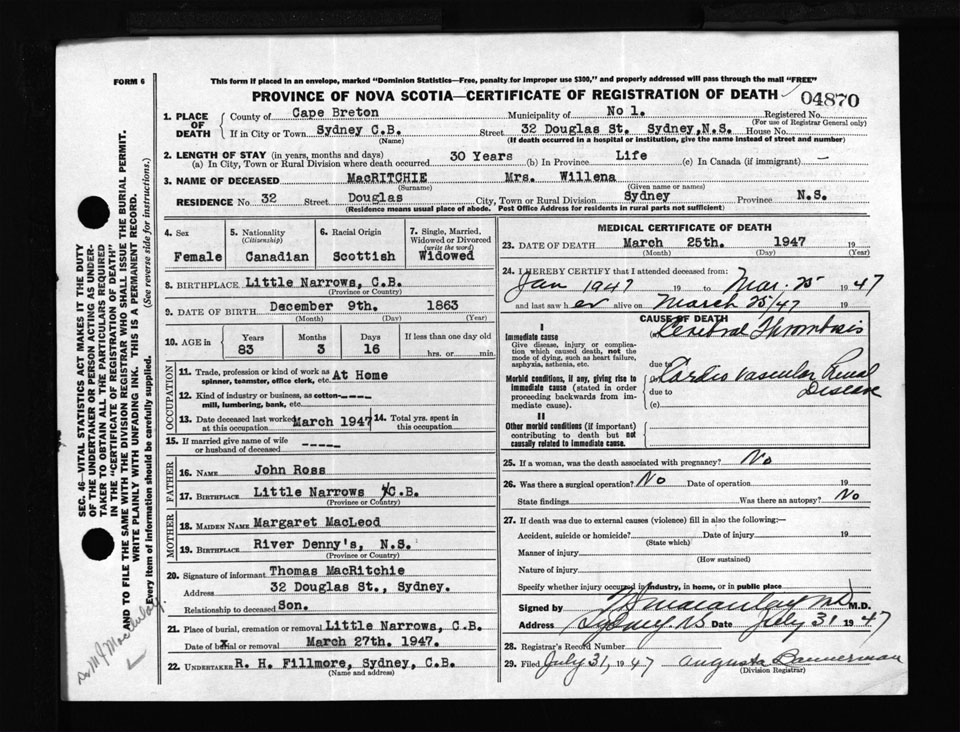 FORM 6
This form if placed in an envelope, marked "Dominion Statistics—Free, penalty for improper use $300," and properly addressed will pass through the mail "FREE"
PROVINCE OF NOVA SCOTIA—CERTIFICATE OF REGISTRATION OF DEATH
04870
1. PLACE OF DEATH
County of Cape Breton Municipality of No 1. Registered No.
(For use of Registrar General only)
If in City or Town Sydney C.B. Street 32 Douglas St. Sydney, N.S. House No.
(Name) (If death occurred in a hospital or institution, give the name instead of street and number)
2. LENGTH OF STAY (in years, months and days)
(a) In City, Town or Rural Division where death occurred 30 Years (b) In Province Life (c) In Canada (if immigrant) —
3. NAME OF DECEASED MacRITCHIE Mrs. Willena
(Surname) (Given name or names)
RESIDENCE No 32 Street Douglas City, Town or Rural Division Sydney Province N.S.
(Residence means usual place of abode. Post Office Address for residents in rural parts not sufficient)
4. Sex Female
5. Nationality (Citizenship) Canadian
6. Racial Origin Scottish
7. Single, Married, Widowed or Divorced (write the word) Widowed
8. BIRTHPLACE Little Narrows, C.B.
(Province or Country)
9. DATE OF BIRTH December 9th. 1863
(Month) (Day) (Year)
10. AGE in Years Months Days If less than one day old
83 3 16 hrs. or min.
OCCUPATION
11. Trade, profession or kind of work as spinner, teamster, office clerk, etc. At Home
12. Kind of industry or business, as cotton-mill, lumbering, bank, etc. ----
13. Date deceased last worked at this occupation March 1947
14. Total yrs. spent in this occupation
15. If married give name of wife or husband of deceased -----
FATHER
16. NAME John Ross
17. BIRTHPLACE Little Narrows C.B.
(Province or Country)
MOTHER
18. MAIDEN NAME Margaret MacLeod
19. BIRTHPLACE River Denny's, N.S.
(Province or Country)
20. Signature of informant Thomas MacRitchie
Address 32 Douglas St., Sydney.
Relationship to deceased Son.
21. Place of burial, cremation or removal Little Narrows, C.B.
Date of burial or removal March 27th. 1947.
22. UNDERTAKER R. H. Fillmore, Sydney, C.B.
(Name and address)
MEDICAL CERTIFICATE OF DEATH
23. DATE OF DEATH March 25th. 1947 19
(Month) (Day) (Year)
24. I HEREBY CERTIFY that I attended deceased from:
Jan 1947 19 to Mar. 25 1947
and last saw her alive on March 25/47 19
CAUSE OF DEATH
I
Immediate cause
Give disease, injury or complication which caused death, not the mode of dying, such as heart failure, asphyxia, asthenia, etc.
(a) Cerebral Thrombosis
due to
Morbid conditions, if any, giving rise to immediate cause (stated in order proceeding backwards from immediate cause).
(b) Cardio vascular Renal Disease
due to
(c)
II
Other morbid conditions (if important) contributing to death but not causally related to immediate cause.
25. If a woman, was the death associated with pregnancy? No
26. Was there a surgical operation? No Date of operation 19
State findings Was there an autopsy? No
27. If death was due to external causes (violence) fill in also the following:—
Accident, suicide or homicide? Date of injury 19
(State which)
Manner of injury
(How sustained)
Nature of injury
Specify whether injury occurred in industry, in home, or in public place
Signed by Macaulay MD M.D.
Address Sydney NS Date July 31 1947
28. Registrar's Record Number
29. Filed July 31, 1947 Augusta Bannerman
(Division Registrar)
SEC. 46—VITAL STATISTICS ACT MAKES IT THE DUTY
OF THE UNDERTAKER OR PERSON ACTING AS UNDERTAKER TO OBTAIN ALL THE PARTICULARS REQUIRED
IN THE "CERTIFICATE OF REGISTRATION OF DEATH"
AND TO FILE THE SAME WITH THE DIVISION REGISTRAR WHO SHALL ISSUE THE BURIAL PERMIT.
WRITE PLAINLY WITH UNFADING INK. THIS IS A PERMANENT RECORD.
Every item of information should be carefully supplied. (See reverse side for instructions.)
Dr MJ Macaulay